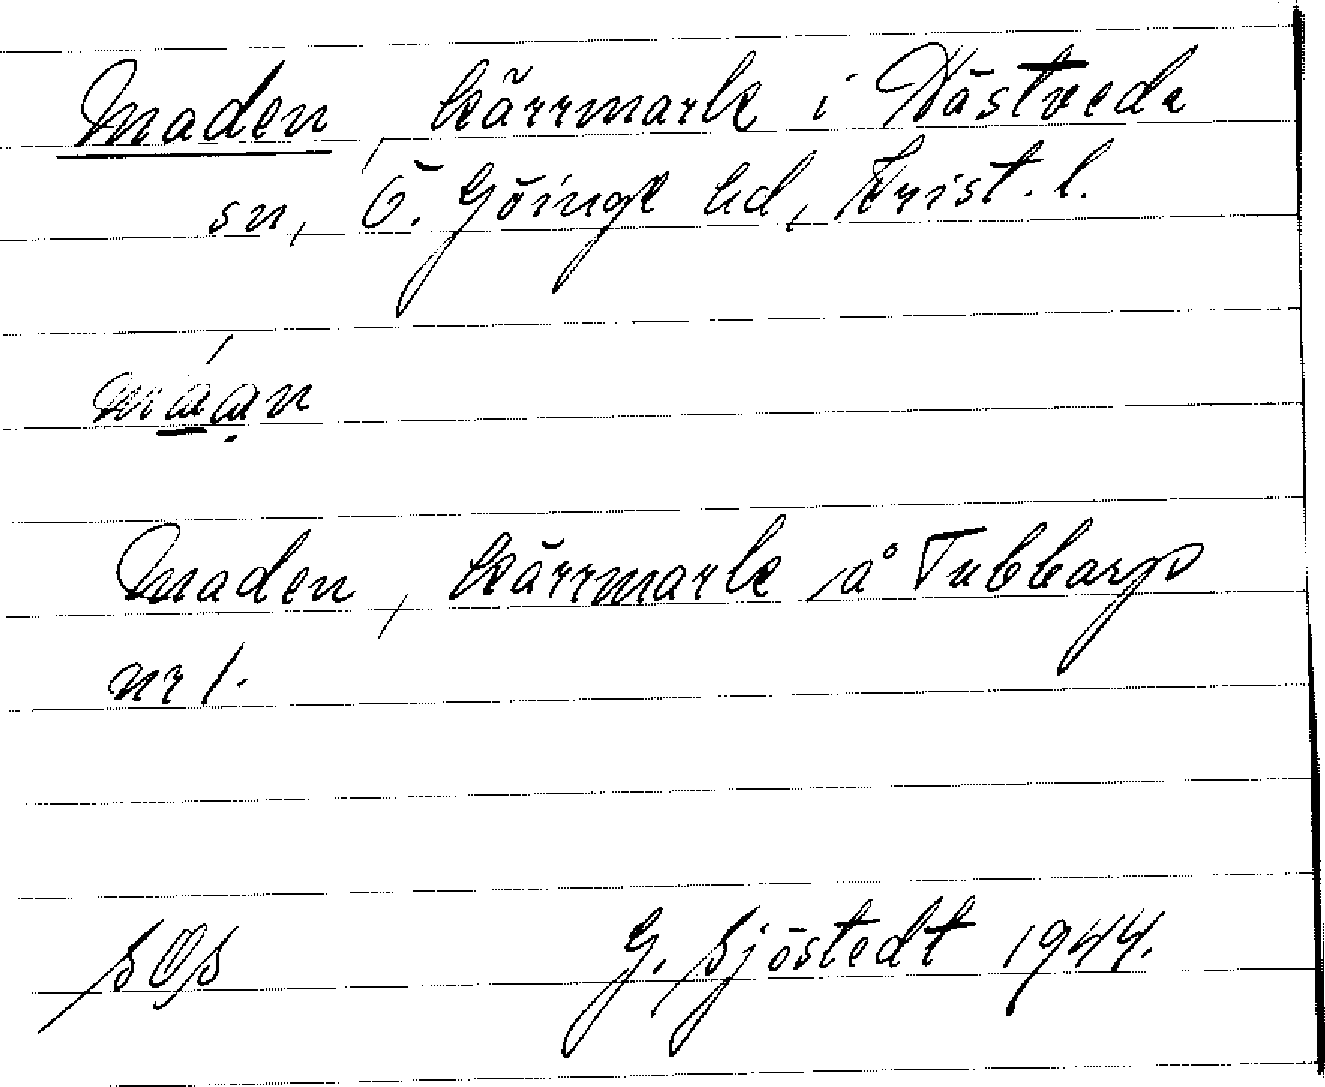 Maden, kärrmark i Hästveda
sn, Ö. Göinge hd, Krist. l.
máan
Maden, kärrmark å Tubbarp
nr 1.
SOS G. Sjöstedt 1944.